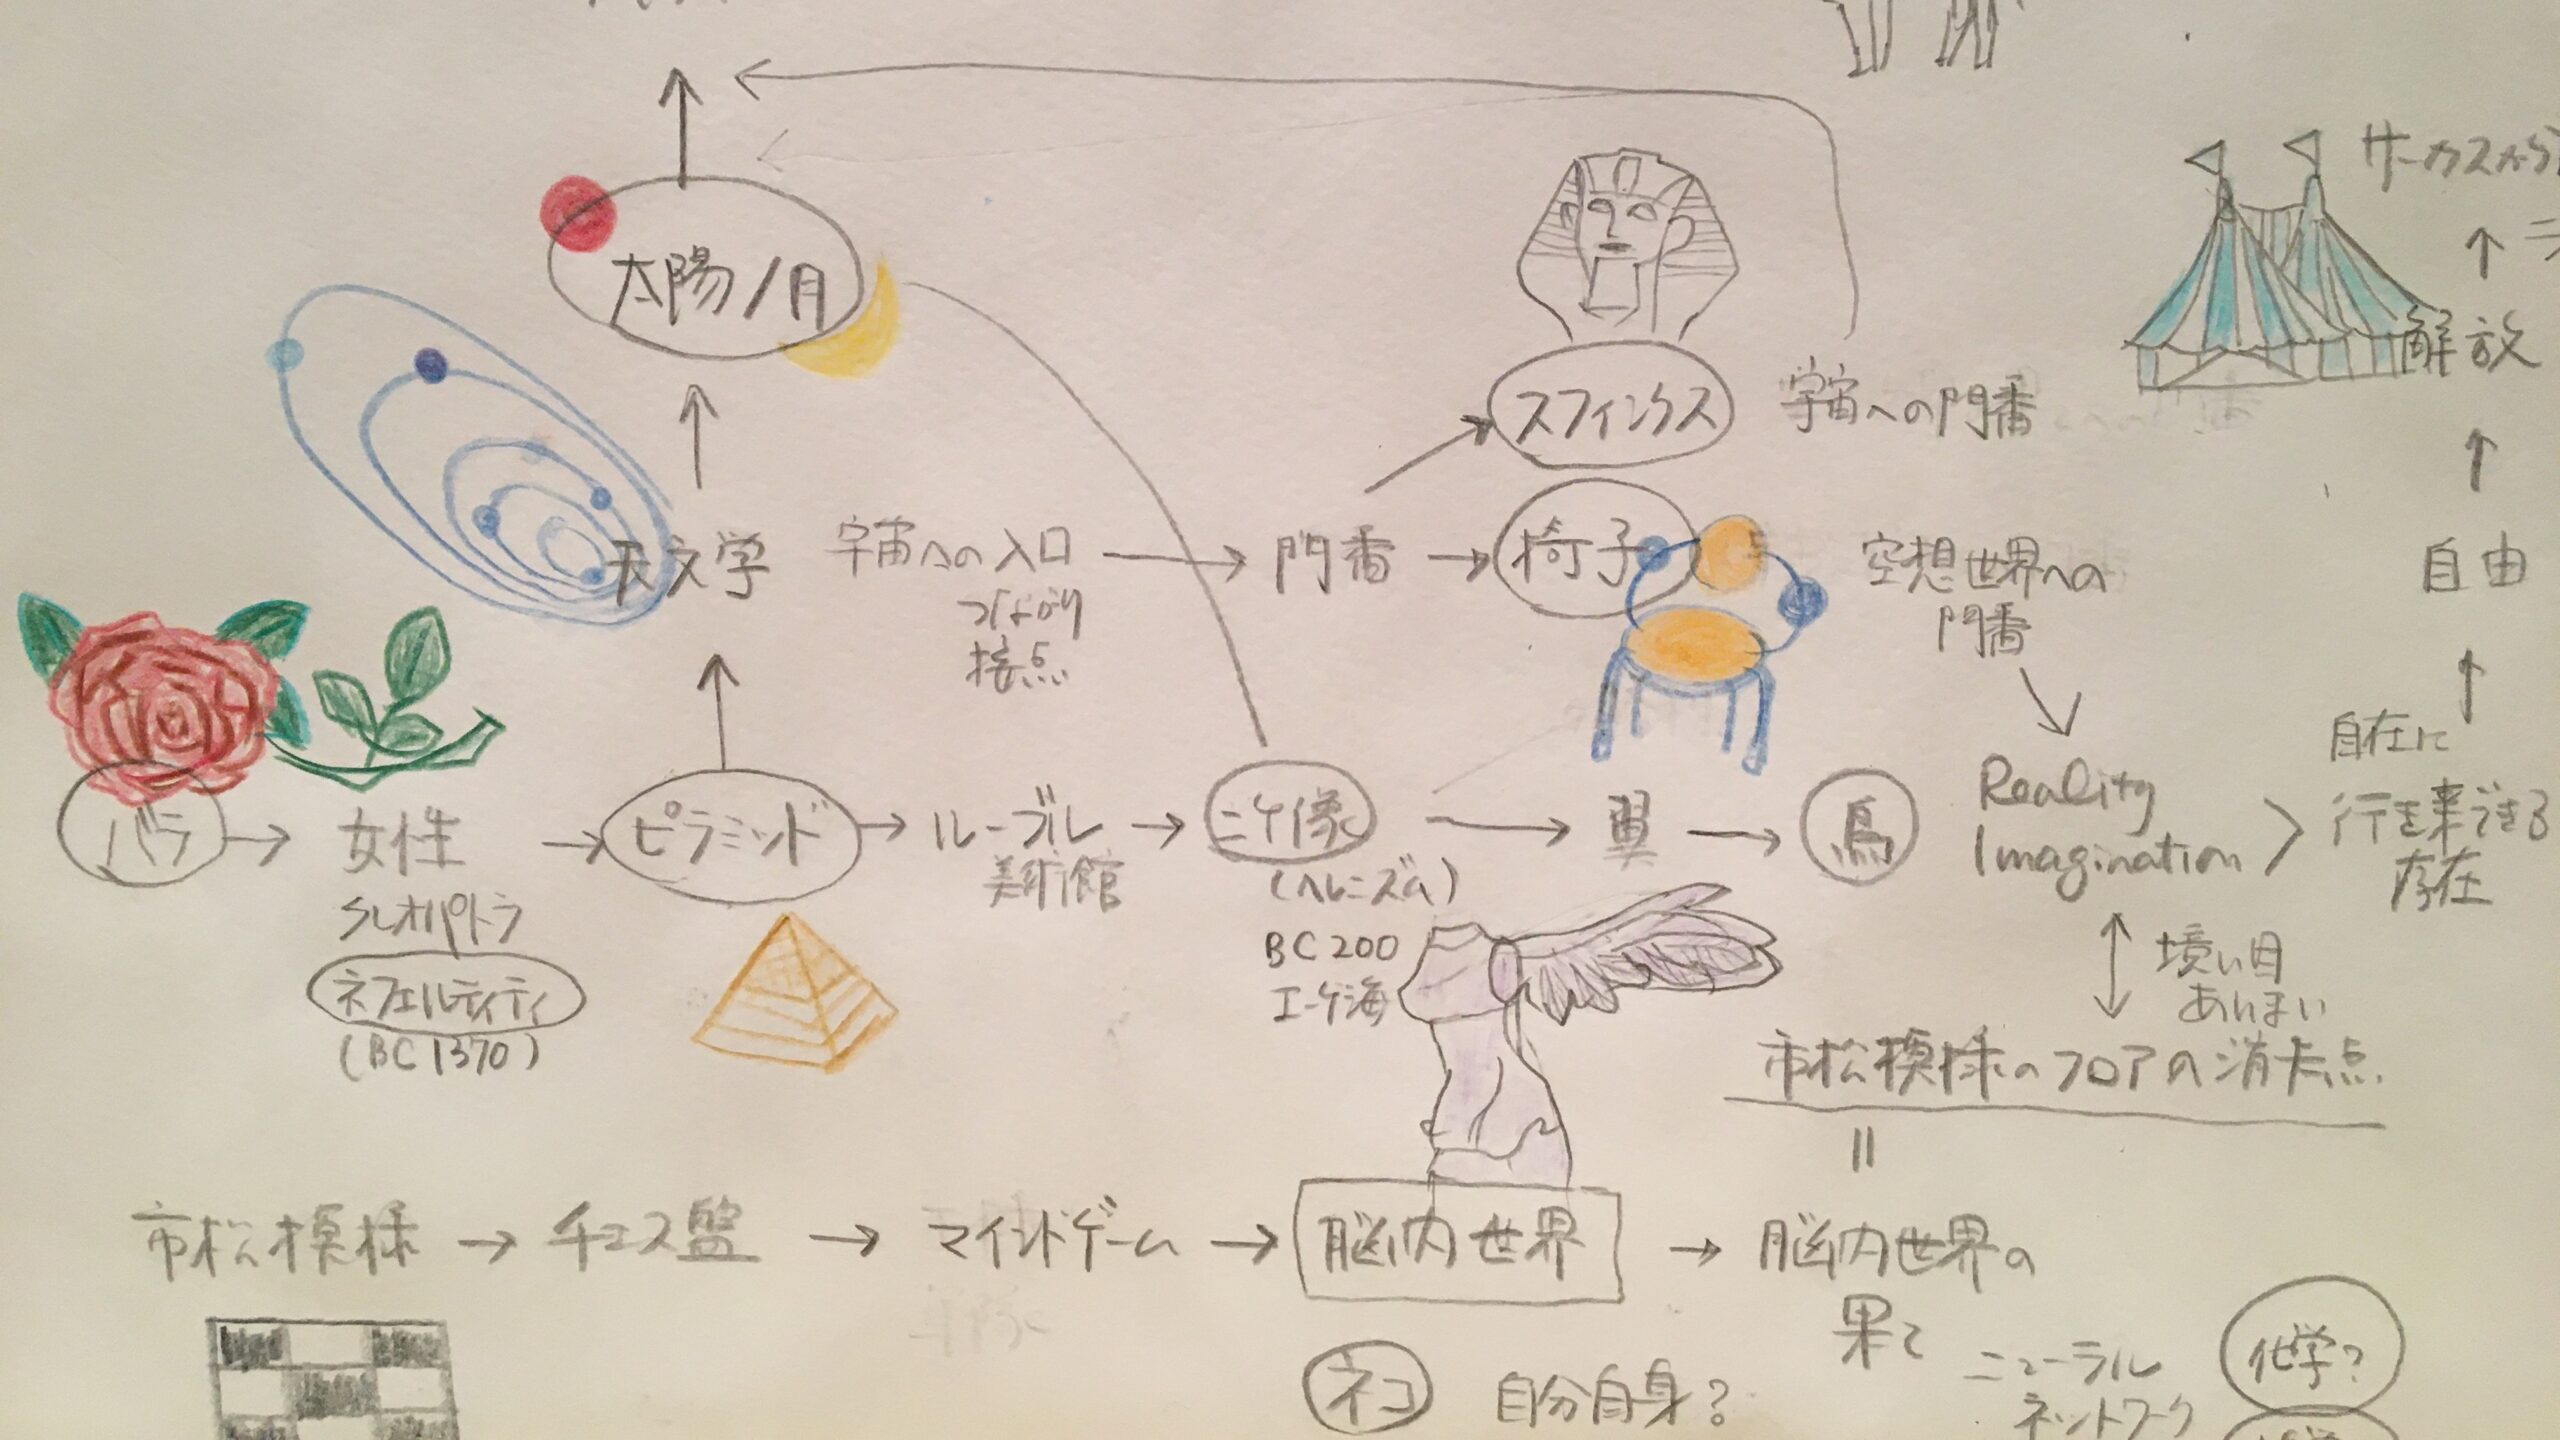 サーカスから
太陽/月
解放
スフィンクス
宇宙への門番
自由
天文学
宇宙への入口
つながり
接点
門番
椅子
空想世界への
門番
バラ
女性
クレオパトラ
ネフェルティティ
(BC1370)
ピラミッド
ルーブル
美術館
ニケ像
(ヘレニズム)
BC200
エーゲ海
翼
鳥
Reality
Imagination
自在に
行き来できる
存在
境い目
あいまい
市松模様のフロアの消失点
市松模様
チェス盤
マインドゲーム
脳内世界
脳内世界の
果て
ネコ
自分自身?
ニューラル
ネットワーク
化学?